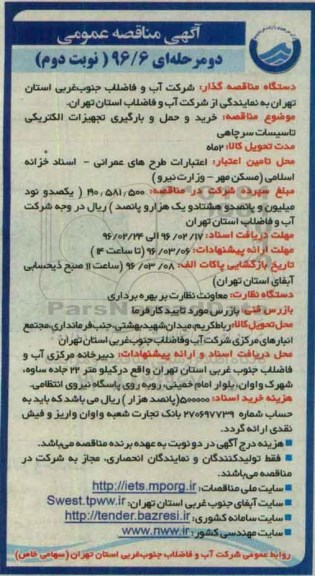 آگهی مناقصه عمومی
دومرحله‌ای ۹۶/۶ ( نوبت دوم)
دستگاه مناقصه گذار: شرکت آب و فاضلاب جنوب‌غربی استان
تهران به نمایندگی از شرکت آب و فاضلاب استان تهران.
موضوع مناقصه: خرید و حمل و بارگیری تجهیزات الکتریکی
تاسیسات سرچاهی
مدت تحویل کالا: ۲ماه
محل تامین اعتبار: اعتبارات طرح های عمرانی - اسناد خزانه
اسلامی (مسکن مهر - وزارت نیرو)
مبلغ سپرده شرکت در مناقصه: ۱۹۰/۵۸۱/۵۰۰ ( یکصدو نود
میلیون و پانصدو هشتادو یک هزارو پانصد ) ریال در وجه شرکت
آب و فاضلاب استان تهران
مهلت دریافت اسناد: ۹۶/۰۲/۱۷ الی ۹۶/۰۲/۲۴
مهلت ارائه پیشنهادات: ۹۶/۰۳/۰۶ (تا ساعت ۱۴ )
تاریخ بازگشایی پاکات الف: ۹۶/۰۳/۰۸ (ساعت ۱۱ صبح ذیحسابی
آبفای استان تهران)
دستگاه نظارت: معاونت نظارت بر بهره برداری
بازرس فنی: بازرس مورد تایید کارفرما
محل تحویل کالا: رباط‌کریم، میدان شهیدبهشتی، جنب فرمانداری، مجتمع
انبارهای مرکزی شرکت آب و فاضلاب جنوب غربی استان تهران
محل دریافت اسناد و ارائه پیشنهادات: دبیرخانه مرکزی آب و
فاضلاب جنوب غربی استان تهران واقع درکیلو متر ۲۲ جاده ساوه،
شهرک واوان، بلوار امام خمینی، روبه روی پاسگاه نیروی انتظامی.
هزینه خرید اسناد: ۵۰۰۰۰۰(پانصد هزار ) ریال می باشد که باید به
حساب شماره ۲۷۰۶۹۷۷۳۹ بانک تجارت شعبه واوان واریز و فیش
نقدی ارائه گردد.
هزینه درج آگهی در دو نوبت به عهده برنده مناقصه می‌باشد.
فقط تولیدکنندگان و نمایندگان انحصاری، مجاز به شرکت در
مناقصه می‌باشند.
سایت ملی مناقصات: http://iets.mporg.ir
سایت آبفای جنوب غربی استان تهران: Swest.tpww.ir
سایت سامانه کشوری: http://tender.bazresi.ir
سایت مهندسی کشور: www.nww.ir
روابط عمومی شرکت آب و فاضلاب جنوب‌غربی استان تهران (سهامی خاص)